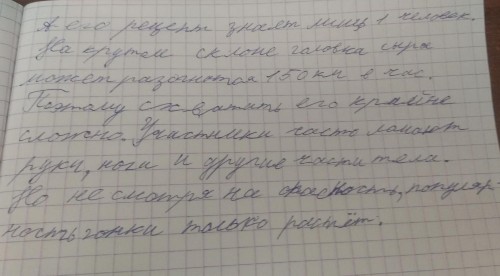 А его рецепт знает лишь 1 человек.
На крутом склоне головка сыра
может разогнатся 150 км в час.
Поэтому схватить его крайне
сложно. Участники часто ломают
руки, ноги и другие части тела.
Но не смотря на опасность, популяр-
ность гонки только растёт.